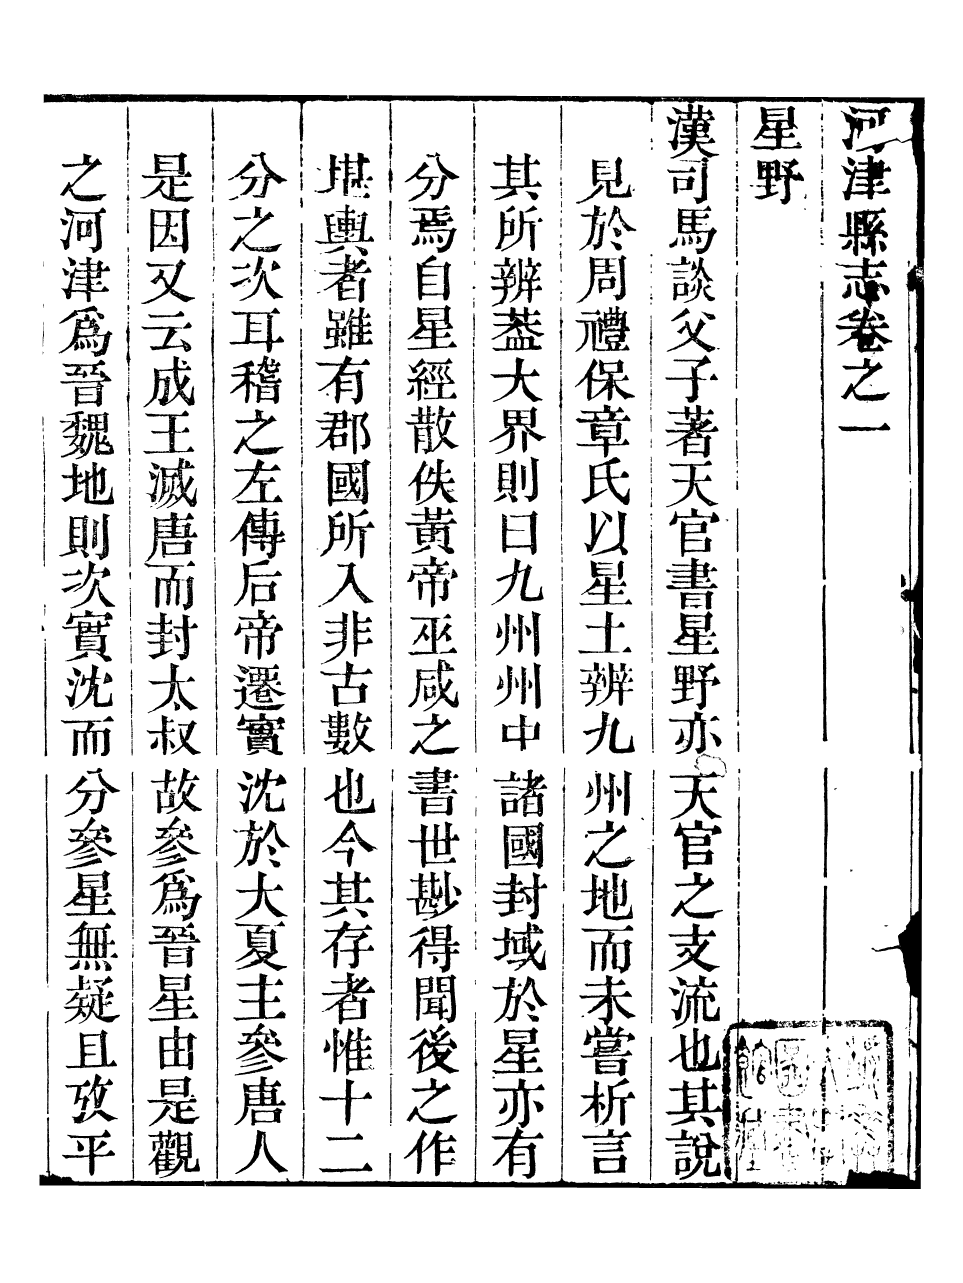 河津縣志卷之一
星野
漢司馬談父子著天官書星野亦天官之支流也其說
見於周禮保章氏以星土辨九州之地而未嘗析言
其所辨葢大界則曰九州州中諸國封域於星亦有
分焉自星經散佚黃帝巫咸之書世尟得聞後之作
堪輿者雖有郡國所入非古數也今其存者惟十二
分之次耳稽之左傳后帝遷實沈於大夏主參唐人
是因又云成王滅唐而封太叔故參爲晉星由是觀
之河津爲晉魏地則次實沈而分參星無疑且攷平